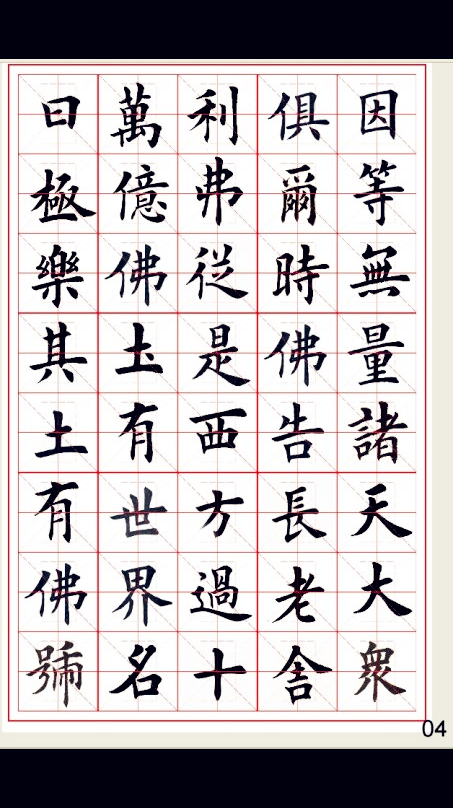 因等無量諸天大衆
俱爾時佛告長老舍
利弗從是西方過十
萬億佛土有世界名
曰極樂其土有佛號
04